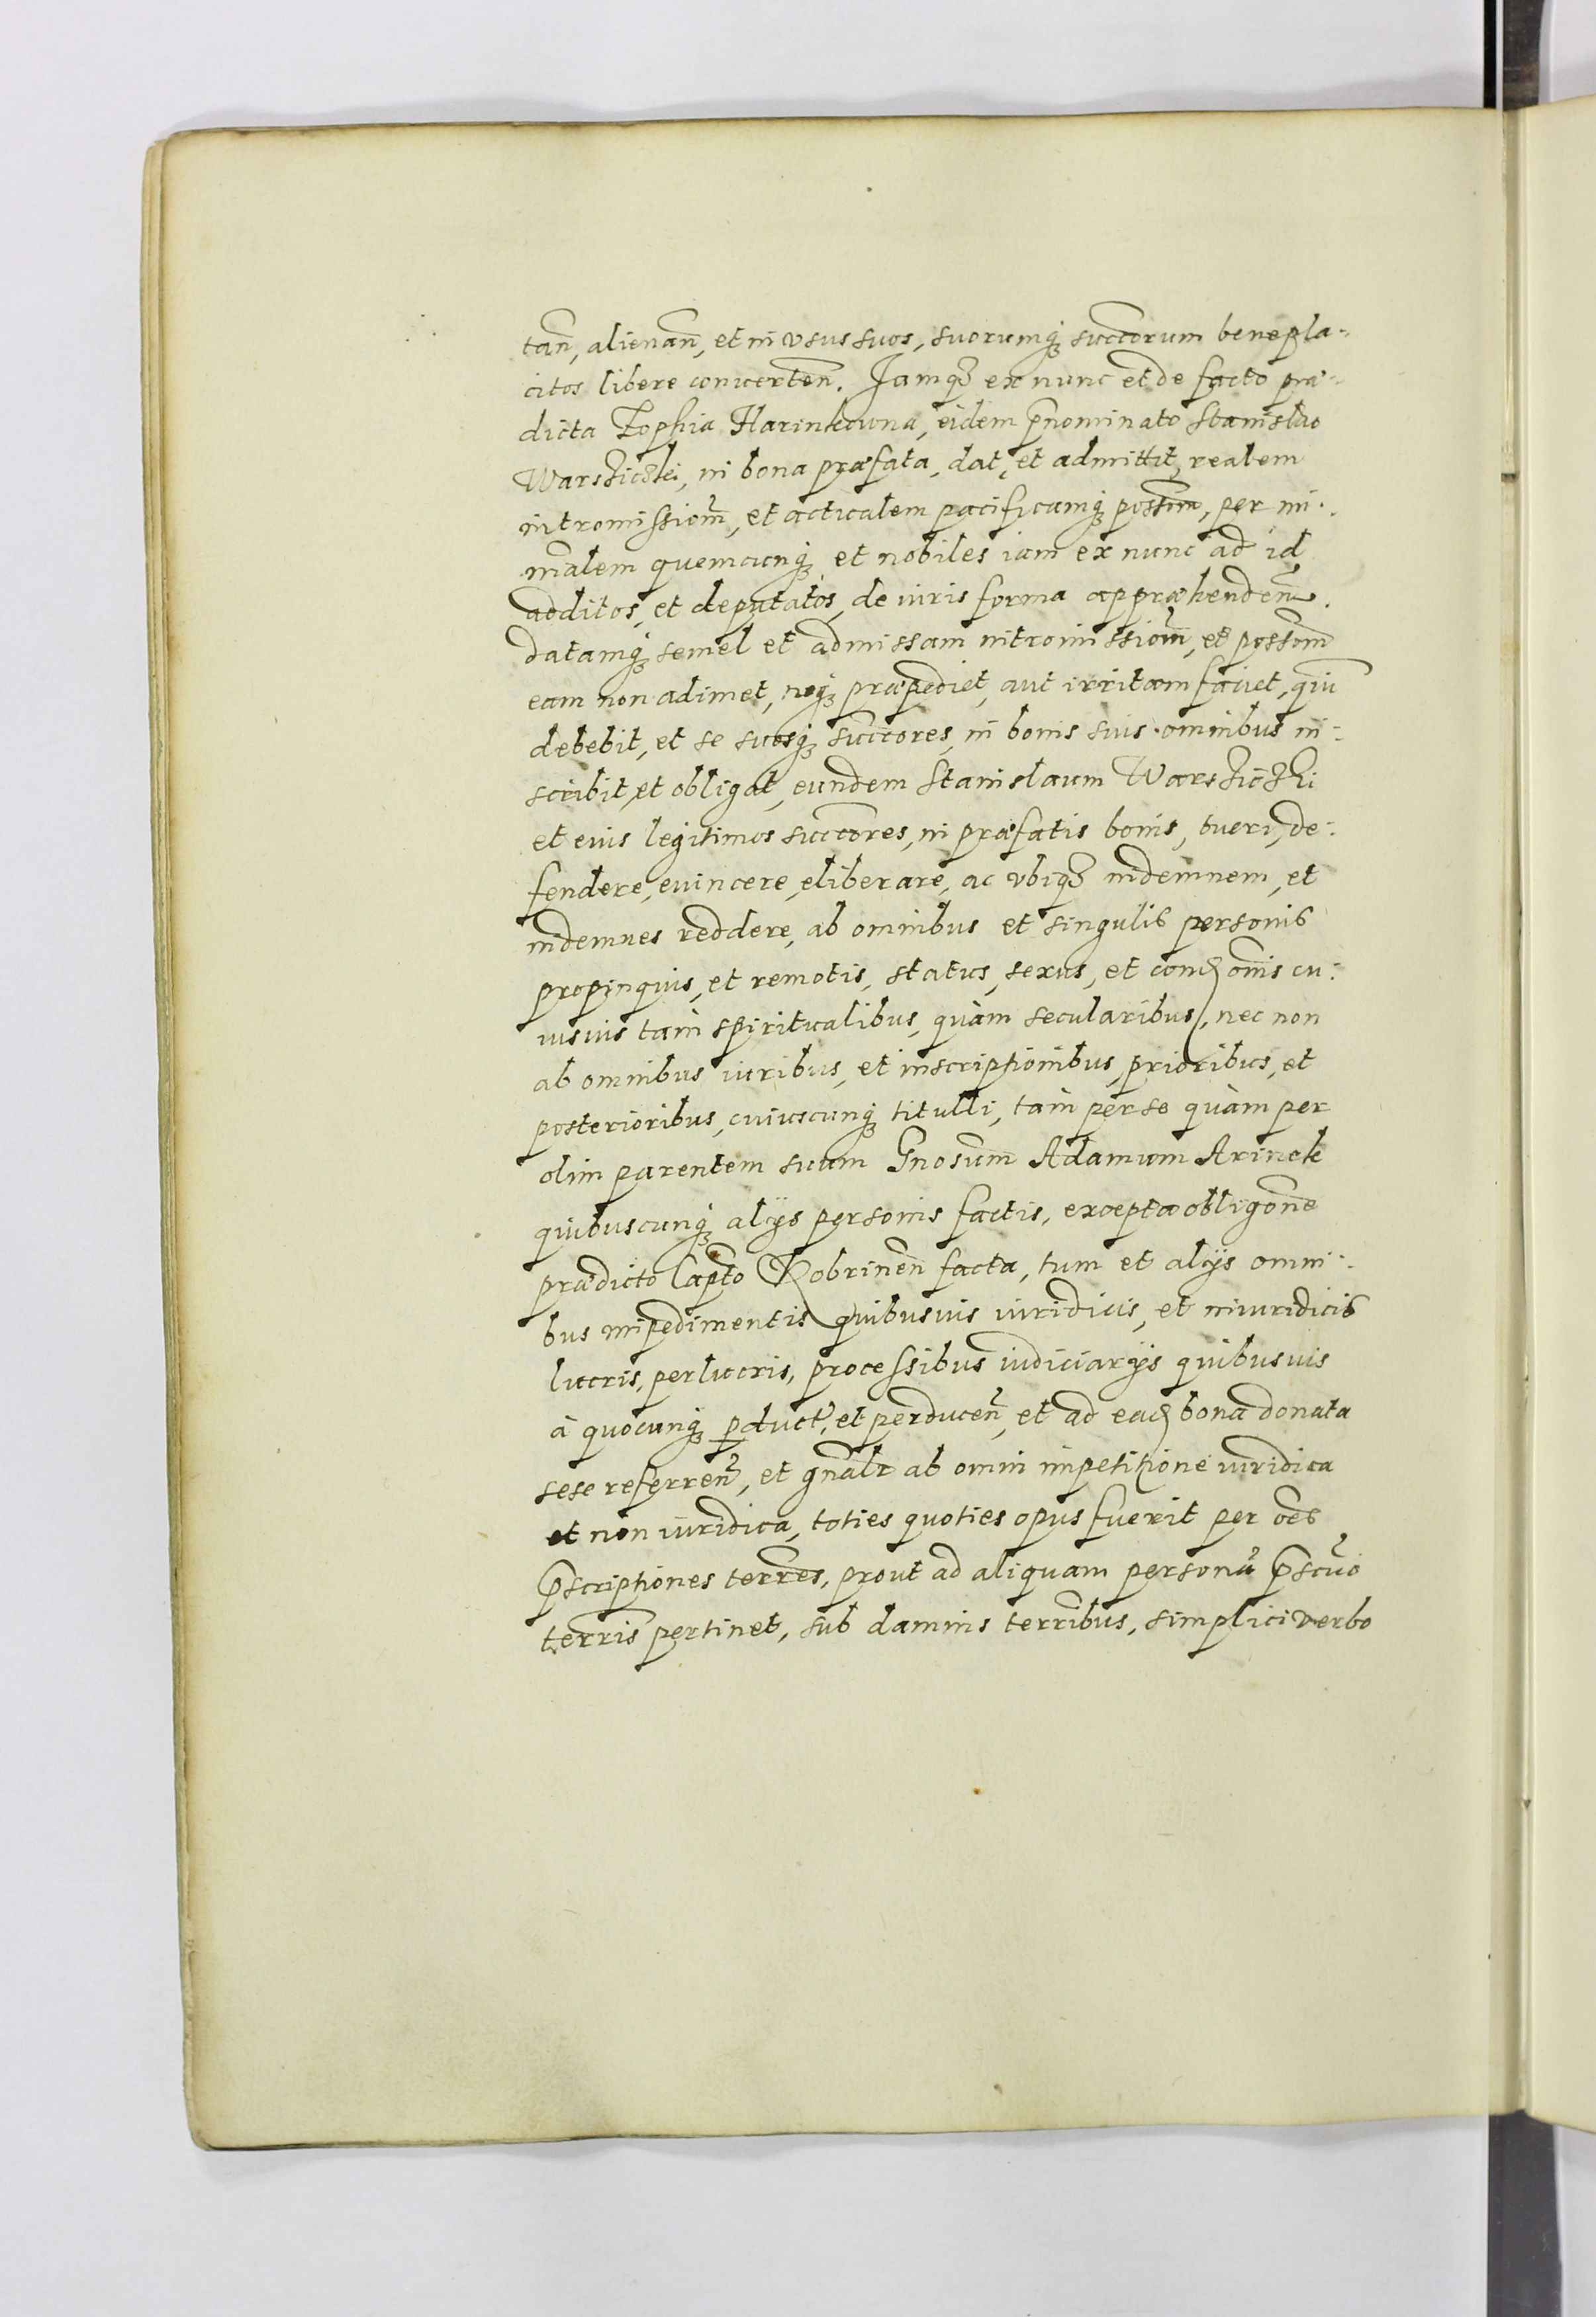 tan̄, alienan̄, et in vsus suos, suorumq́ꝫ succ̄orum benepla-
citos libere conuerten̄. Jamqꝫ ex nunc et de facto præ-
dicta Zophia Harinkowna, eidem p̄nominato Stanislao
Warszickei, in bona præfata, dat, et admittit, realem
intromissiom̄, et actualem pacificamq́ꝫ possēm, per mi-
n̄alem quemcunq́ꝫ et nobiles iam ex nunc ad id
additos, et deputatos, de iuris forma appræhenden̄.
datamq́ꝫ semel et admissam intromissiom̄, et possom̄
eam non adimet, neq́ꝫ præpediet, aut irritam faciet, quin̄
debebit, et se suosq́ꝫ succ̄ores, in bonis suis omnibus in-
scribit et obligat, eundem Stanislaum Warszicki
et eius legitimos succ̄ores, in præfatis bonis, tueri, de-
fendere, euincere, eliberare, ac vbiqꝫ indemnem, et
indemnes reddere, ab omnibus et singulis personis
propinquis, et remotis, status, sexus, et cond̄onis cu-
iusuis tam spiritualibus, quàm secularibus, nec non
ab omnibus iuribus, et inscriptionibus, prioribus, et
posterioribus, cuiuscunq́ꝫ titulli, tam per se quàm per
olim parentem suum Gn̄osum Adamum Arinek
quibuscunq́ꝫ alijs personis factis, excepta obligōne
prædicto Capt̄o Kobrinen̄ facta, tum et alijs omni-
bus impedimentis quibusuis iuridicis, et iniuridicis
lucris, perlucris, processibus iudiciarijs quibusuis
à quocunq́ꝫ ꝑduct̄, et perducen̄, et ad ead̄ bona donata
sese referren̄, et gn̄alr ab omni impetitione iuridica
et non iuridica, toties quoties opus fuerit per oēs
p̄scriptiones terr̄es, prout ad aliquam personā p̄scri̅o
terr̄is pertinet, sub damnis terr̄ibus, simplici verbo